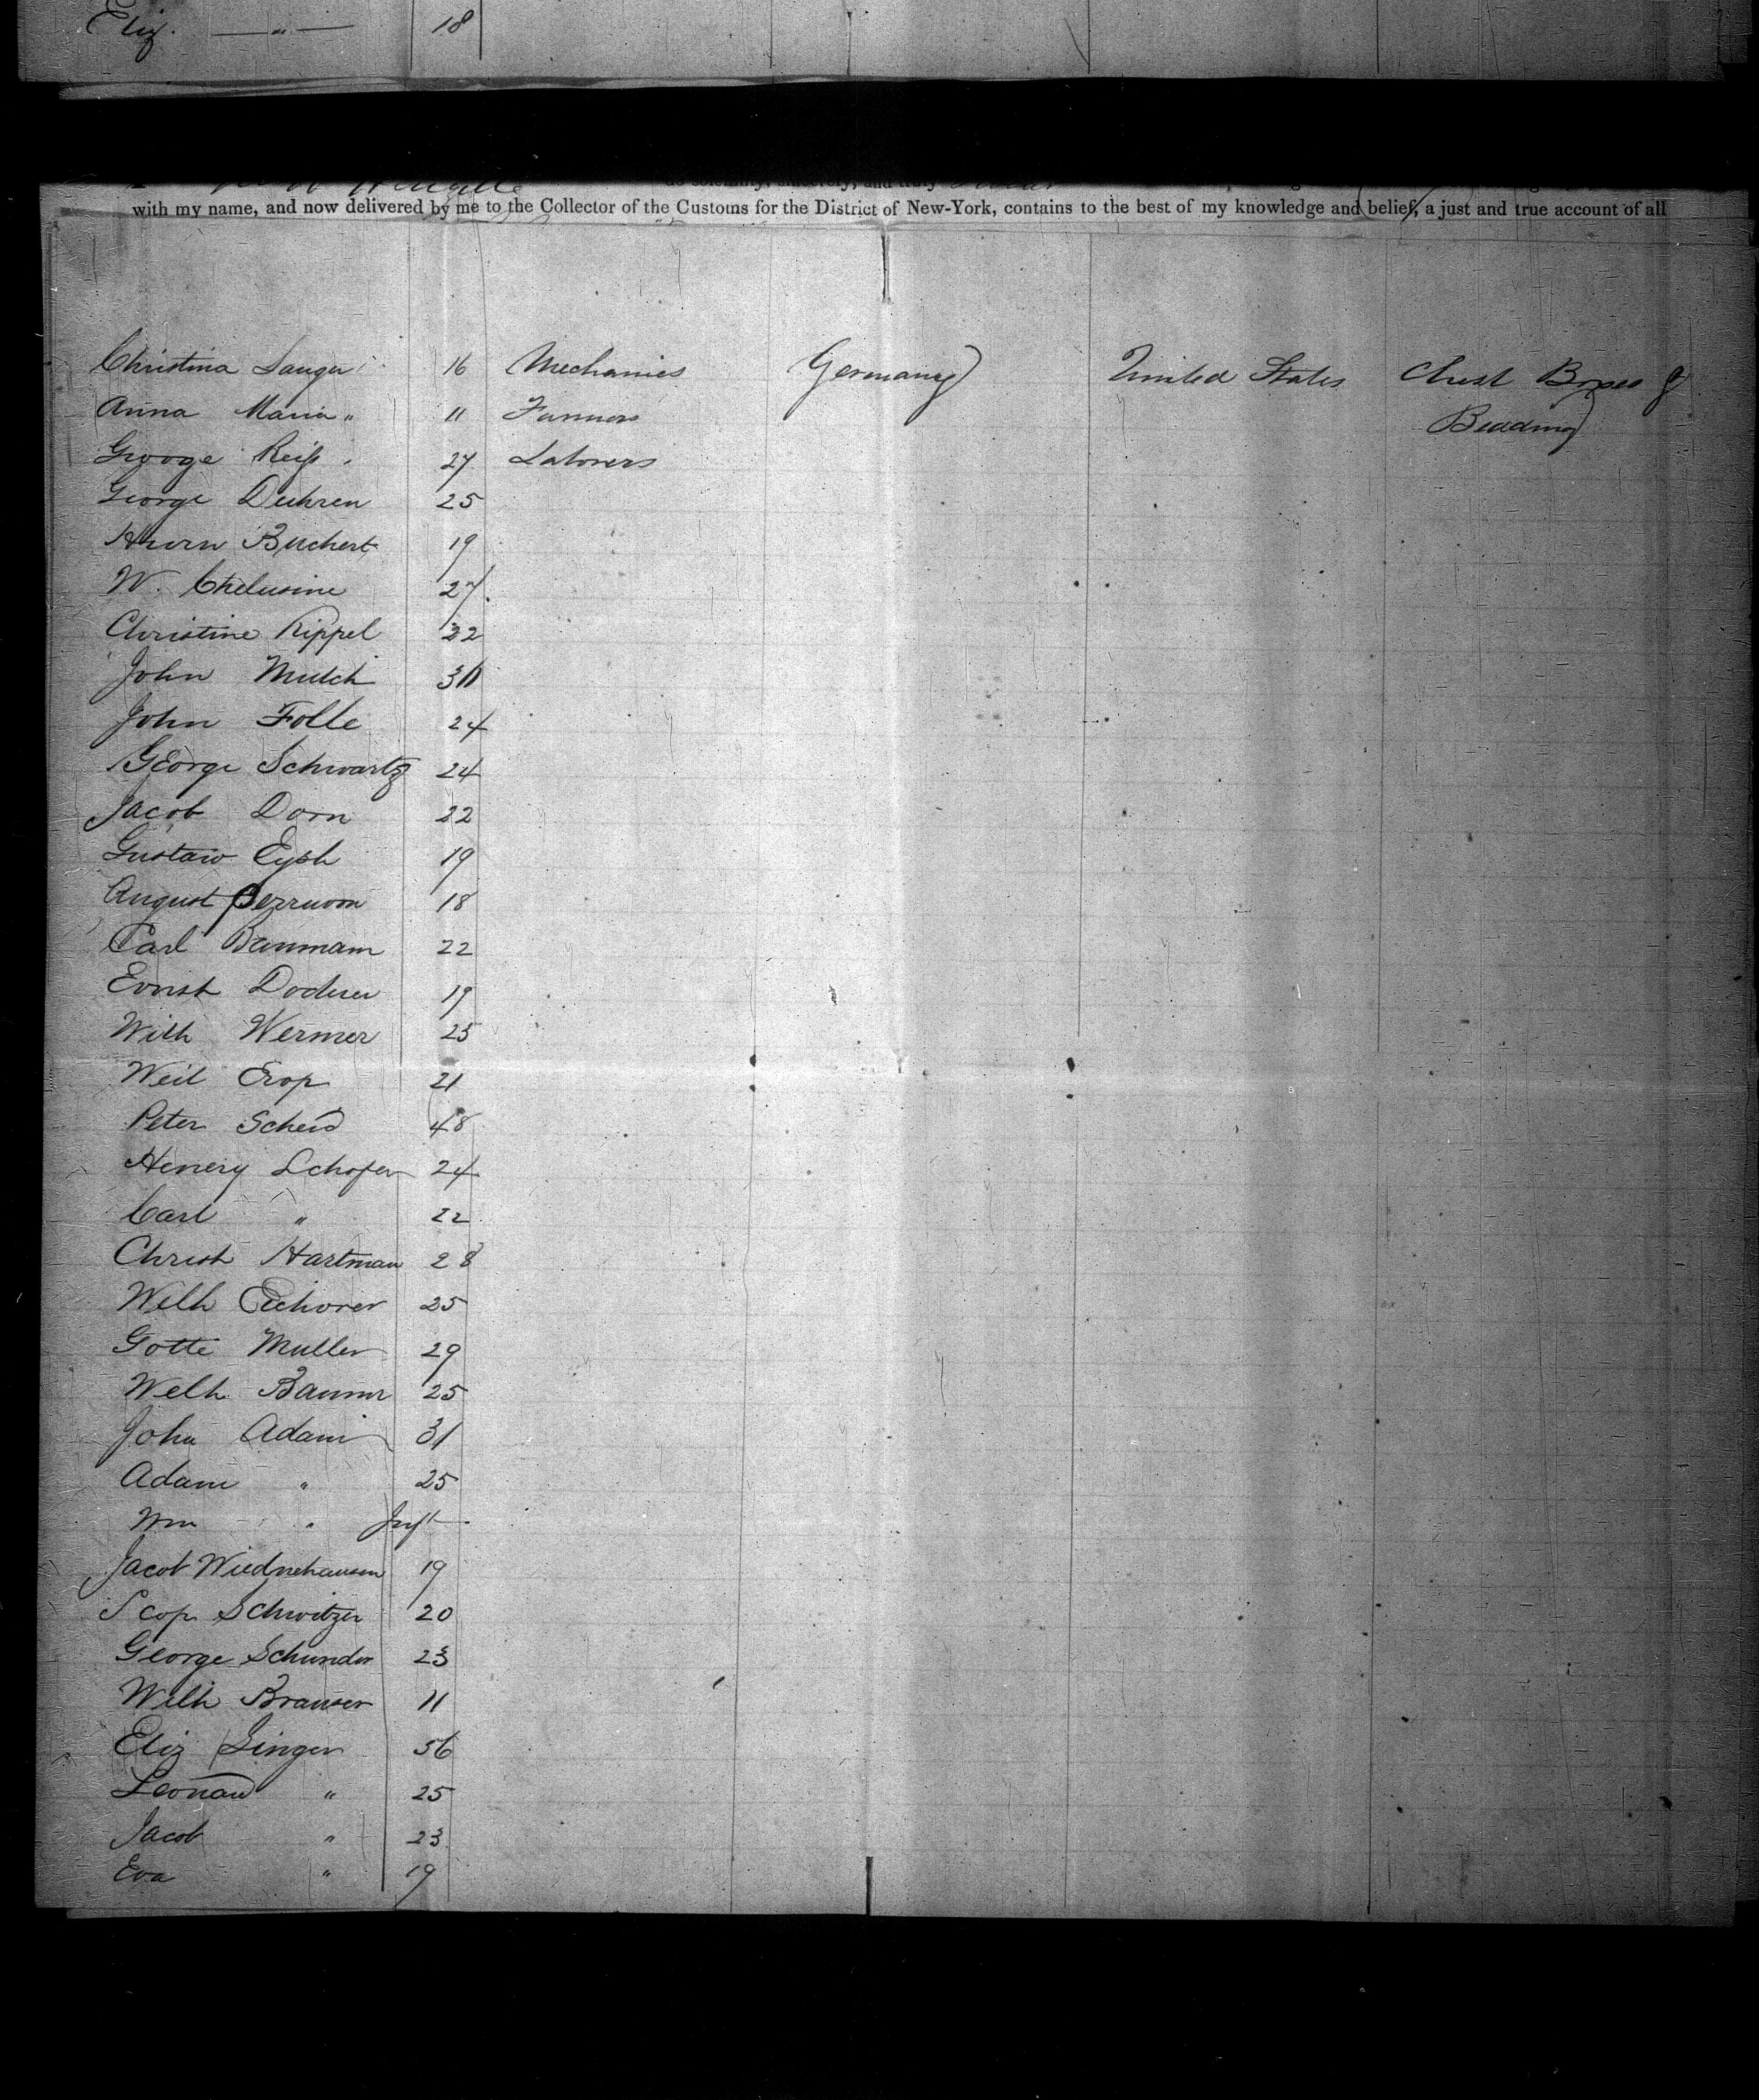 Eliz. — " — 18
do solemnly, sincerely, and truly
with my name, and now delivered by me to the Collector of the Customs for the District of New-York, contains to the best of my knowledge and belief, a just and true account of all
Christina Sauger 16 Mechanics Germany United States Chest Boxes &
Anna Maria " 11 Farmers Beading
George Reiß 27 Laborers
George Duhren 25
Buchert 19
W. 27
Christine Rippel 22
John Mutch 30
John Folle 24
George Schwartz 24
Jacob Dorn 22
Gustaw Eysh 19
August 18
Carl Baumann 22
Ernst Doderer 19
Wilh Wermer 25
Weil Erop 21
Peter Scheid 48
Henery Schofer 24
Carl " 22
Christ Hartman 28
Welh Eichorer 25
Gotte Muller 29
Welh Baumr 25
John Adam 31
Adam " 25
Wm " Inft
Jacob Wiednehausen 19
Scop Schwitzer 20
George Schunder 23
Wilh Brauser 11
Eliz Singer 56
Leonard " 25
Jacob " 23
Eva " 19